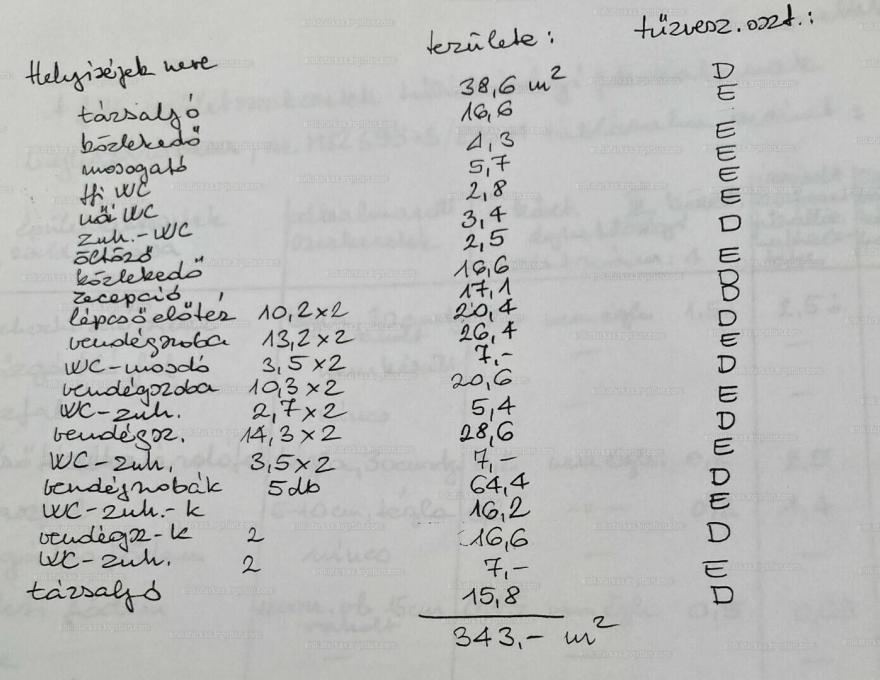 Helyiségek neve területe: tűzvesz. oszt.:
társalgó 38,6 m² D
közlekedő 16,6 E
mosogató 4,3 E
ffi WC 5,7 E
női WC 2,8 E
zuh.-WC 3,4 E
öltöző 2,5 D
közlekedő 16,6 E
recepció 17,1 D
lépcső előtér 10,2×2 20,4 E
vendégszoba 13,2×2 26,4 D
WC-mosdó 3,5×2 7,- E
vendégszoba 10,3×2 20,6 D
WC-zuh. 2,7×2 5,4 E
vendégsz. 14,3×2 28,6 D
WC-zuh. 3,5×2 7,- E
vendégszobák 5db 64,4 D
WC-zuh.-k 16,2 E
vendégsz-k 2 16,6 D
WC-zuh. 2 7,- E
társalgó 15,8 D
343,- m²